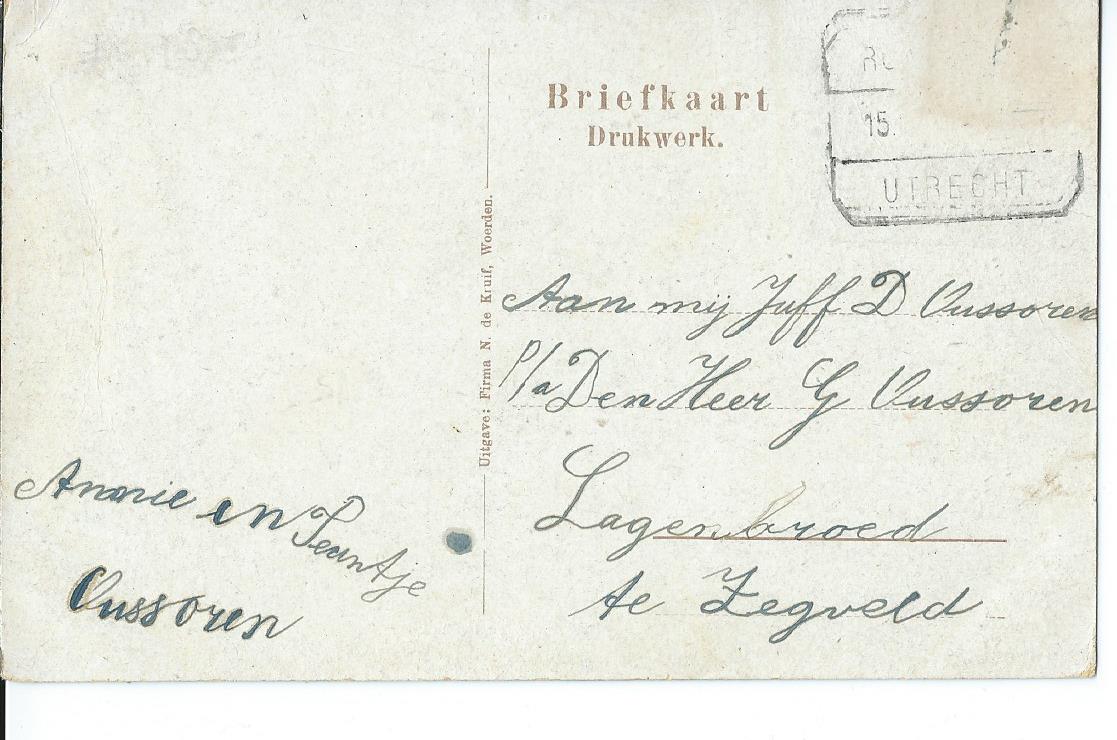 Briefkaart
Drukwerk.
15.
UTRECHT
Uitgave: Firma N. de Kruif, Woerden.
Aan mij Juff D Vussoren
p/a Den Heer G Vussoren
Lagenbroed
te Zegveld
Annie en Teuntje
Vussoren